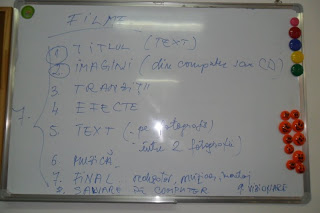 FILME
1 TITLUL (TEXT)
2 IMAGINI (din computer sau CD)
3 TRANZIȚII
4 EFECTE
7. 5 TEXT (- pe fotografii
- între 2 fotografii
6 MUZICĂ
7. FINAL redactor, muzica, montaj
8. SALVARE PE COMPUTER 9. VIZIONARE